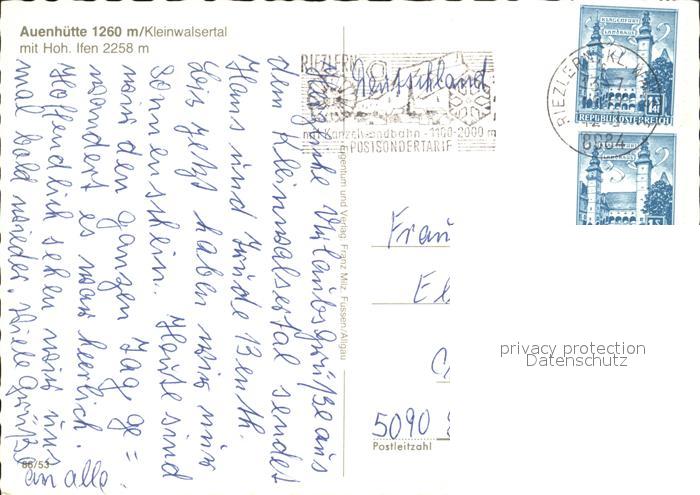 Auenhütte 1260 m/Kleinwalsertal
mit Hoh. Ifen 2258 m
Herzliche Urlaubsgrüße aus
dem Kleinwalsertal sendet
Hans und Trude Benth.
Bis jetzt haben wir nur
Sonnenschein. Heute sind
wir den ganzen Tag ge=
wandert es war herrlich.
Hoffendlich sehen wir uns
mal bald wieder. Viele Grüße
an alle.
86/53
Eigentum und Verlag Franz Milz, Füssen/Allgäu
RIEZLERN
Deutschland
mit Kanzelwandbahn - 1100-2000 m
POSTSONDERTARIF
RIEZLERN, KL. W
KLAGENFURT
LANDHAUS
REPUBLIK ÖSTERREICH
KLAGENFURT
LANDHAUS
Frau
El
5090
Postleitzahl
privacy protection
Datenschutz